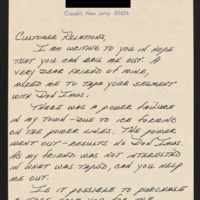 Cresskill, New Jersey 07626
Customer Relations,
I am writing to you in hope
that you can bail me out. A
very dear friend of mine,
asked me to tape your segment
with Don Imus.
There was a power failure
in my town - due to ice forming
on the power lines. The power
went out - results no Don Imus.
As my friend was not interested
in what was taped, can you help
me out.
Is it possible to purchase
a tape from you or me